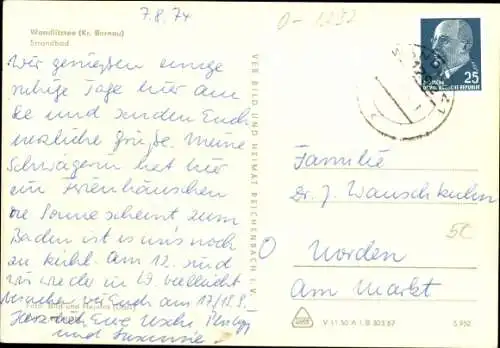 7.8.74
O-1232
Wandlitzsee (Kr. Bernau)
Strandbad
Wir genießen einige
ruhige Tage hier am
See und senden Euch
herzliche Grüße. Meine
Schwägerin hat hier
ein Ferienhäuschen
die Sonne scheint zum
Baden ist es uns noch
zu kühl. Am 12. sind
wir wieder in
am 17/18.8.
Eure
und Susanne
VEB BILD UND HEIMAT REICHENBACH I. V.
25
DEUTSCHE DEMOKRATISCHE REPUBLIK
Familie
Dr. J. Wauschkuhn
Norden
Am Markt
5€
V 11 50 A 1 B 303/67
S 952